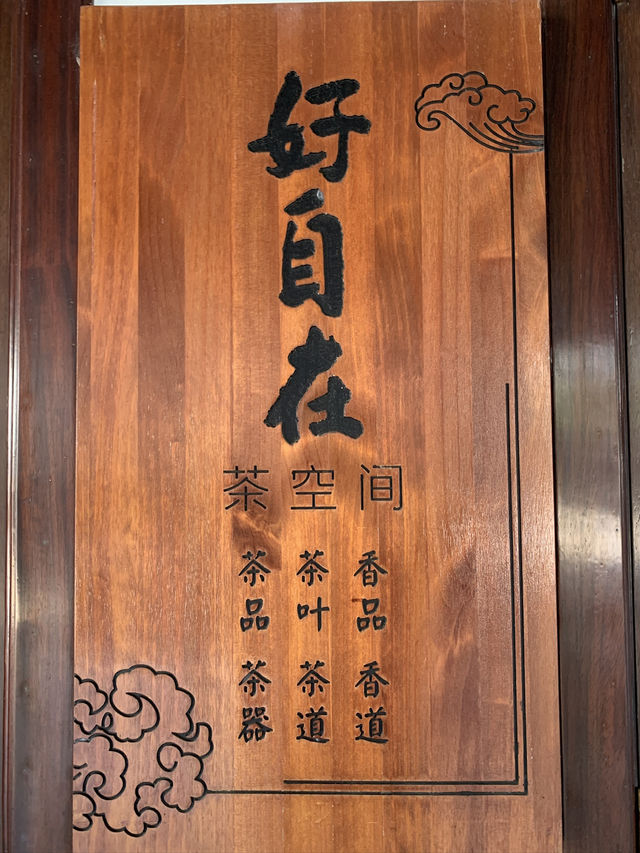 好自在
茶空间
香品 香道
茶叶 茶道
茶品 茶器